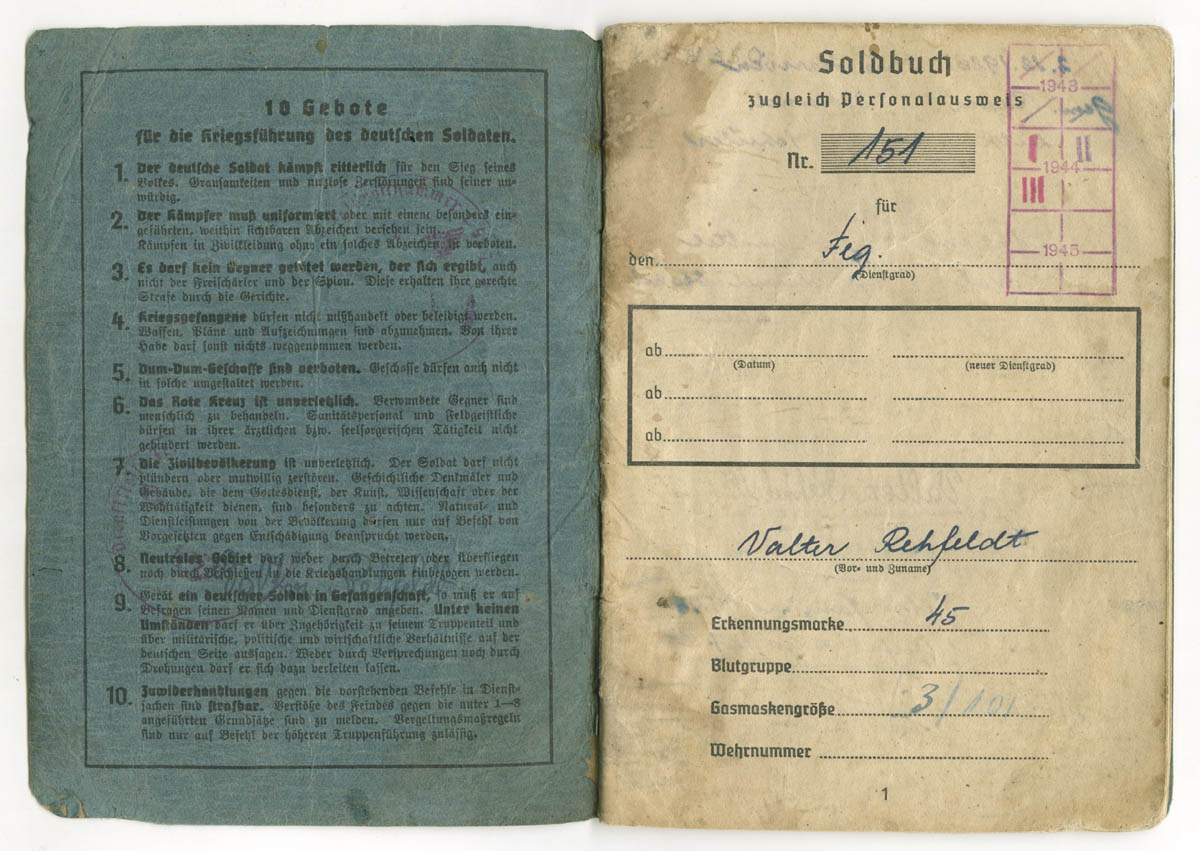 10 Gebote
für die Kriegsführung des deutschen Soldaten.
1. Der deutsche Soldat kämpft ritterlich für den Sieg seines
Volkes. Grausamkeiten und nutzlose Zerstörungen sind seiner un-
würdig.
2. Der Kämpfer muß uniformiert oder mit einem besonders ein-
geführten, weithin sichtbaren Abzeichen versehen sein.
Kämpfen in Zivilkleidung ohne ein solches Abzeichen ist verboten.
3. Es darf kein Gegner getötet werden, der sich ergibt, auch
nicht der Freischärler und der Spion. Diese erhalten ihre gerechte
Strafe durch die Gerichte.
4. Kriegsgefangene dürfen nicht mißhandelt oder beleidigt werden.
Waffen, Pläne und Aufzeichnungen sind abzunehmen. Von ihrer
Habe darf sonst nichts weggenommen werden.
5. Dum-Dum-Geschosse sind verboten. Geschosse dürfen auch nicht
in solche umgestaltet werden.
6. Das Rote Kreuz ist unverletzlich. Verwundete Gegner sind
menschlich zu behandeln. Sanitätspersonal und Feldgeistliche
dürfen in ihrer ärztlichen bzw. seelsorgerischen Tätigkeit nicht
gehindert werden.
7. Die Zivilbevölkerung ist unverletzlich. Der Soldat darf nicht
plündern oder mutwillig zerstören. Geschichtliche Denkmäler und
Gebäude, die dem Gottesdienst, der Kunst, Wissenschaft oder der
Wohltätigkeit dienen, sind besonders zu achten. Natural- und
Dienstleistungen von der Bevölkerung dürfen nur auf Befehl von
Vorgesetzten gegen Entschädigung beansprucht werden.
8. Neutrales Gebiet darf weder durch Betreten oder Überfliegen
noch durch Beschießen in die Kriegshandlungen einbezogen werden.
9. Gerät ein deutscher Soldat in Gefangenschaft, so muß er auf
Befragen seinen Namen und Dienstgrad angeben. Unter keinen
Umständen darf er über Zugehörigkeit zu seinem Truppenteil und
über militärische, politische und wirtschaftliche Verhältnisse auf der
deutschen Seite aussagen. Weder durch Versprechungen noch durch
Drohungen darf er sich dazu verleiten lassen.
10. Zuwiderhandlungen gegen die vorstehenden Befehle in Dienst-
sachen sind strafbar. Verstöße des Feindes gegen die unter 1—8
angeführten Grundsätze sind zu melden. Vergeltungsmaßregeln
sind nur auf Befehl der höheren Truppenführung zulässig.
Soldbuch
zugleich Personalausweis
Nr. 151
für
den Flg.
(Dienstgrad)
1943
I II
1944
III
1945
ab
(Datum) (neuer Dienstgrad)
ab
ab
Valter Rehfeldt
(Vor- und Zuname)
Erkennungsmarke 45
Blutgruppe
Gasmaskengröße 3/101
Wehrnummer
1